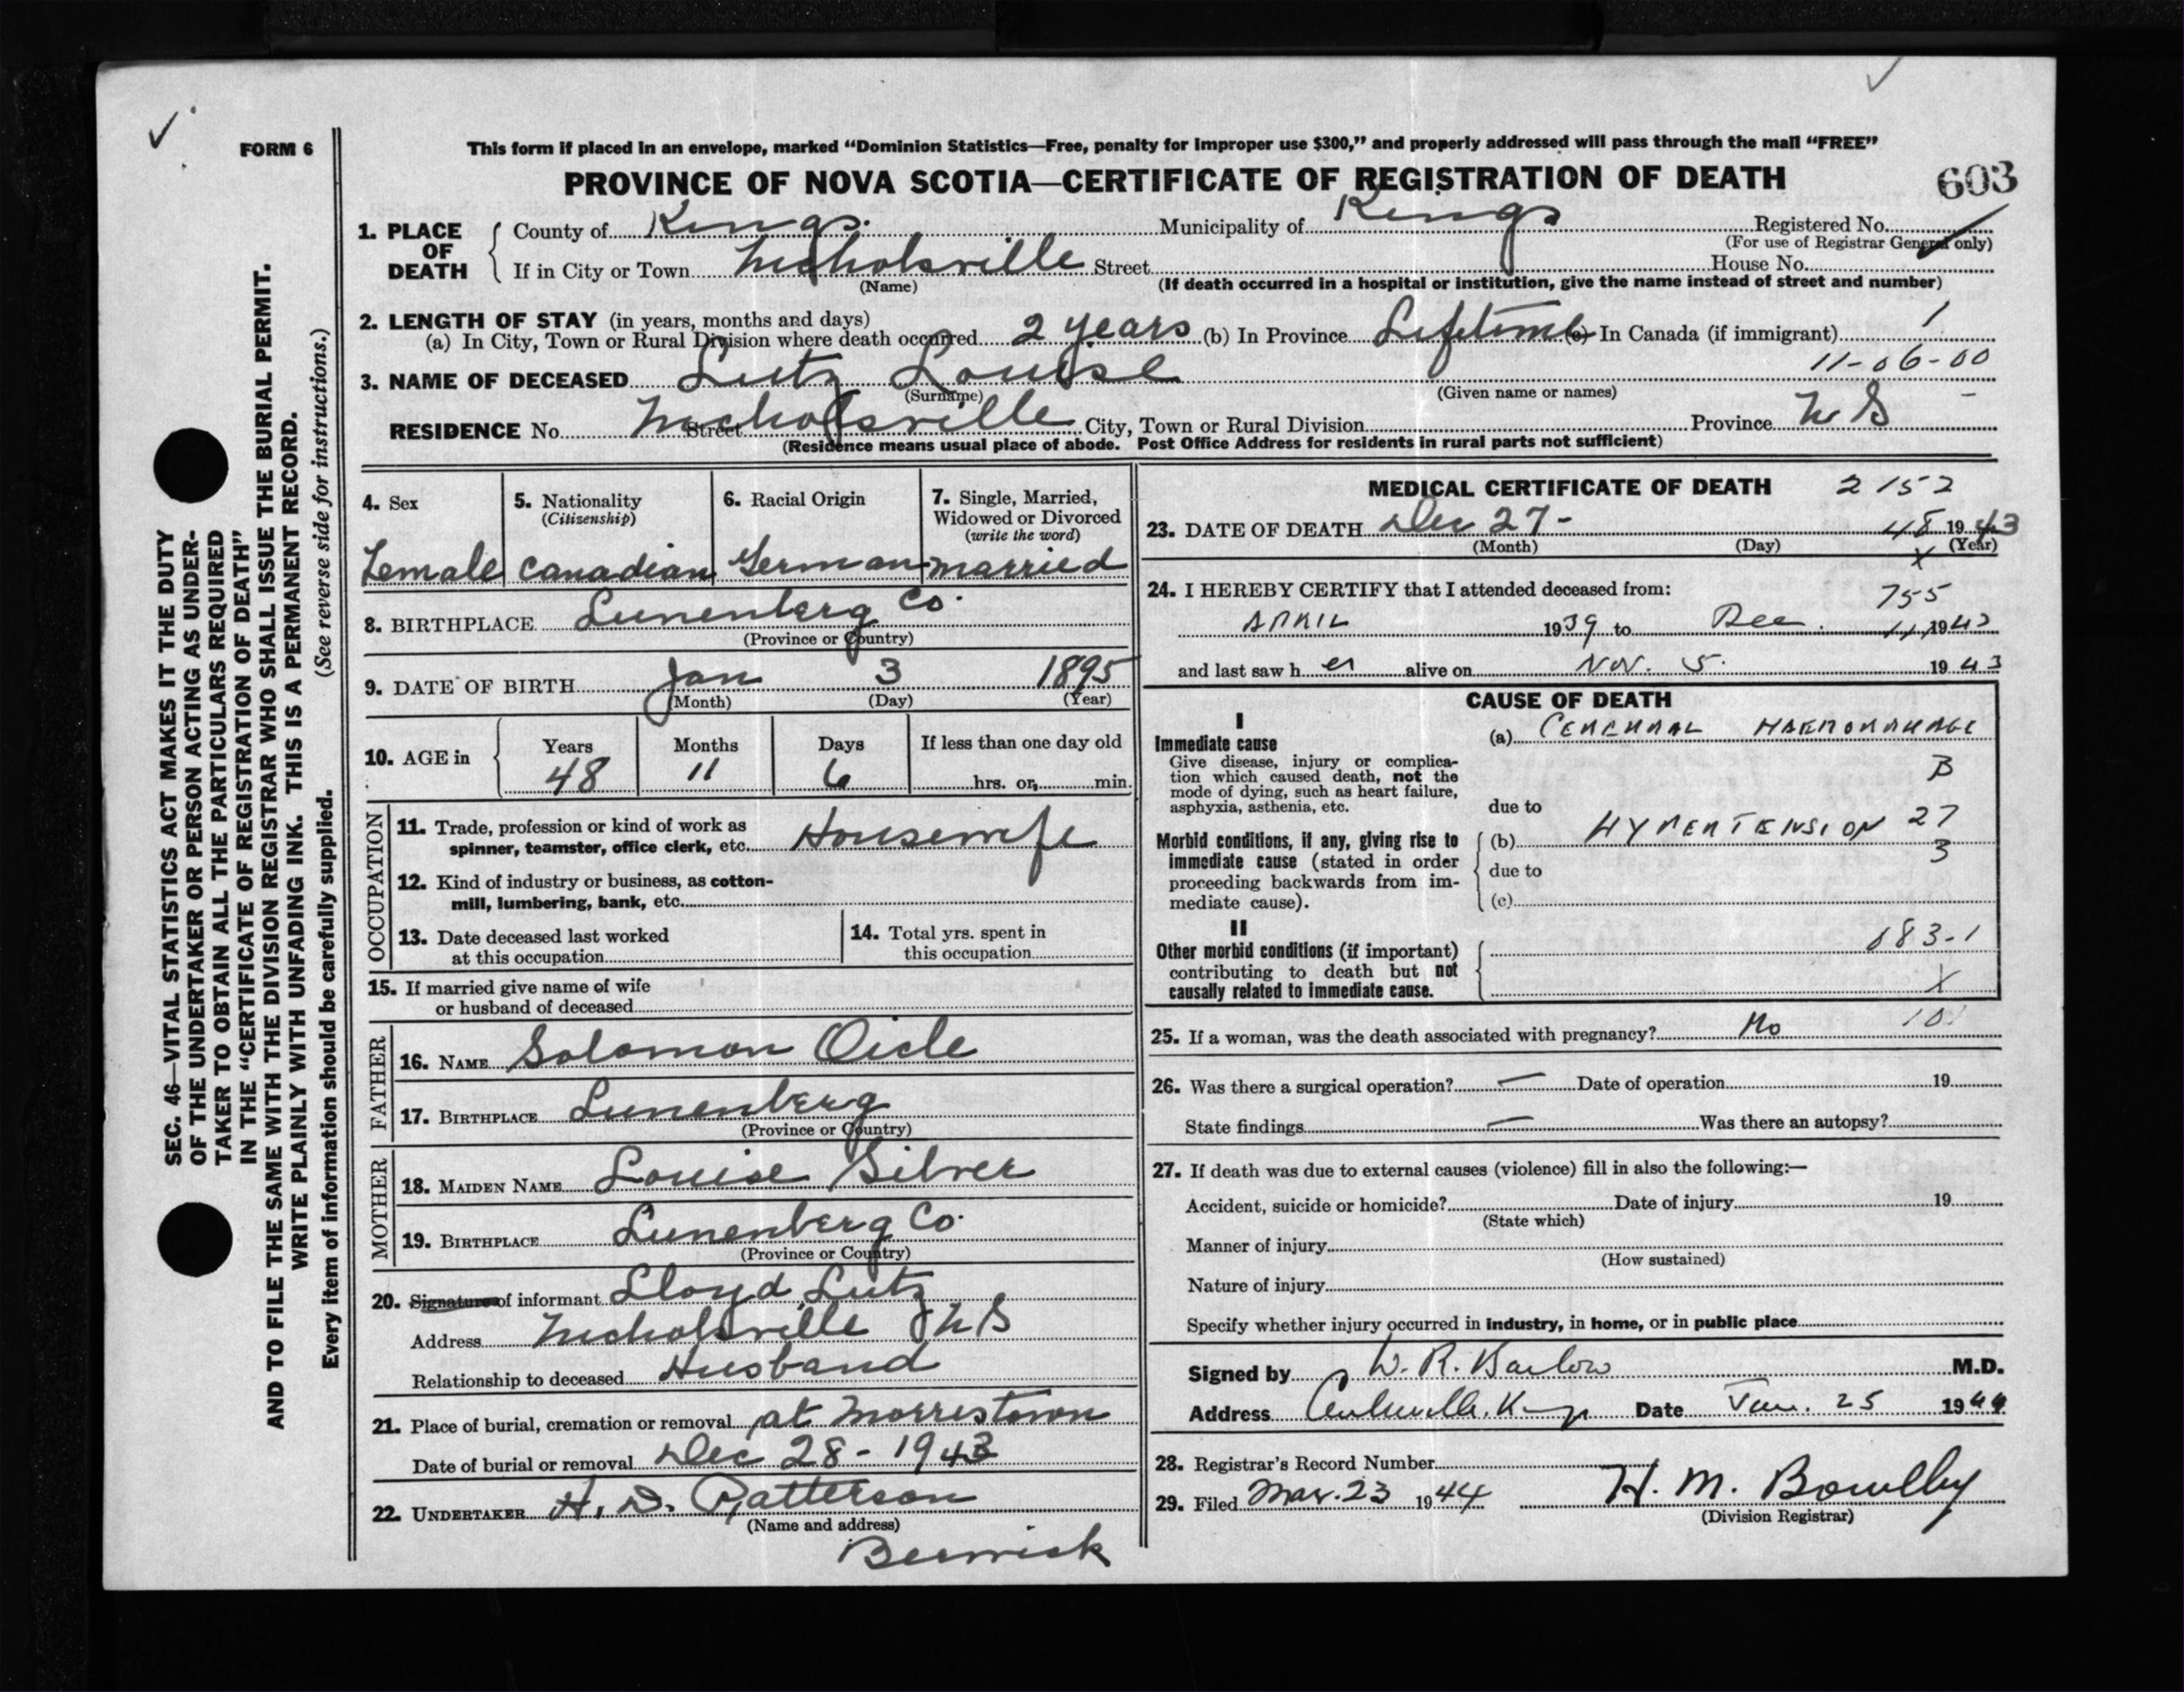 FORM 6
This form if placed in an envelope, marked “Dominion Statistics—Free, penalty for improper use $300,” and properly addressed will pass through the mail “FREE”
PROVINCE OF NOVA SCOTIA—CERTIFICATE OF REGISTRATION OF DEATH
603
1. PLACE OF DEATH
County of Kings. Municipality of Kings Registered No.
(For use of Registrar General only)
If in City or Town Nicholsville Street House No.
(Name) (If death occurred in a hospital or institution, give the name instead of street and number)
2. LENGTH OF STAY (in years, months and days)
(a) In City, Town or Rural Division where death occurred 2 years (b) In Province Lifetime (c) In Canada (if immigrant) 1
11-06-00
3. NAME OF DECEASED Lutz Louise
(Surname) (Given name or names)
RESIDENCE No. Street Nicholsville City, Town or Rural Division Province N S
(Residence means usual place of abode. Post Office Address for residents in rural parts not sufficient)
4. Sex
Female
5. Nationality
(Citizenship)
Canadian
6. Racial Origin
German
7. Single, Married,
Widowed or Divorced
(write the word)
married
8. BIRTHPLACE Lunenberg Co.
(Province or Country)
9. DATE OF BIRTH Jan 3 1895
(Month) (Day) (Year)
10. AGE in
Years Months Days If less than one day old
48 11 6 hrs. or min.
OCCUPATION
11. Trade, profession or kind of work as
spinner, teamster, office clerk, etc. Housewife
12. Kind of industry or business, as cotton-
mill, lumbering, bank, etc.
13. Date deceased last worked
at this occupation
14. Total yrs. spent in
this occupation
15. If married give name of wife
or husband of deceased
FATHER
16. NAME Solomon Oicle
17. BIRTHPLACE Lunenberg
(Province or Country)
MOTHER
18. MAIDEN NAME Louise Silver
19. BIRTHPLACE Lunenberg Co.
(Province or Country)
20. Signature of informant Lloyd Lutz
Address Nicholsville N S
Relationship to deceased Husband
21. Place of burial, cremation or removal at Morristown
Date of burial or removal Dec 28 - 1943
22. UNDERTAKER H. D. Patterson
(Name and address)
Berwick
MEDICAL CERTIFICATE OF DEATH 2152
23. DATE OF DEATH Dec 27 - 48 1943
(Month) (Day) (Year)
X
24. I HEREBY CERTIFY that I attended deceased from:
755
APRIL 1939 to Dec. 1943
and last saw her alive on Nov. 5. 1943
CAUSE OF DEATH
I
Immediate cause
Give disease, injury or complica-
tion which caused death, not the
mode of dying, such as heart failure,
asphyxia, asthenia, etc.
(a) CEREBRAL HAEMORRHAGE
B
due to
Morbid conditions, if any, giving rise to
immediate cause (stated in order
proceeding backwards from im-
mediate cause).
(b) HYPERTENSION 27
3
due to
(c)
II
Other morbid conditions (if important)
contributing to death but not
causally related to immediate cause.
083-1
X
25. If a woman, was the death associated with pregnancy? No 101
26. Was there a surgical operation? — Date of operation 19
State findings — Was there an autopsy?
27. If death was due to external causes (violence) fill in also the following:—
Accident, suicide or homicide? Date of injury 19
(State which)
Manner of injury
(How sustained)
Nature of injury
Specify whether injury occurred in industry, in home, or in public place
Signed by W. R. Barlow M.D.
Address Date Jan. 25 1944
28. Registrar's Record Number
29. Filed Mar. 23 1944 H. M. Bowlby
(Division Registrar)
SEC. 46—VITAL STATISTICS ACT MAKES IT THE DUTY
OF THE UNDERTAKER OR PERSON ACTING AS UNDER-
TAKER TO OBTAIN ALL THE PARTICULARS REQUIRED
IN THE “CERTIFICATE OF REGISTRATION OF DEATH”
AND TO FILE THE SAME WITH THE DIVISION REGISTRAR WHO SHALL ISSUE THE BURIAL PERMIT.
WRITE PLAINLY WITH UNFADING INK. THIS IS A PERMANENT RECORD.
(See reverse side for instructions.)
Every item of information should be carefully supplied.